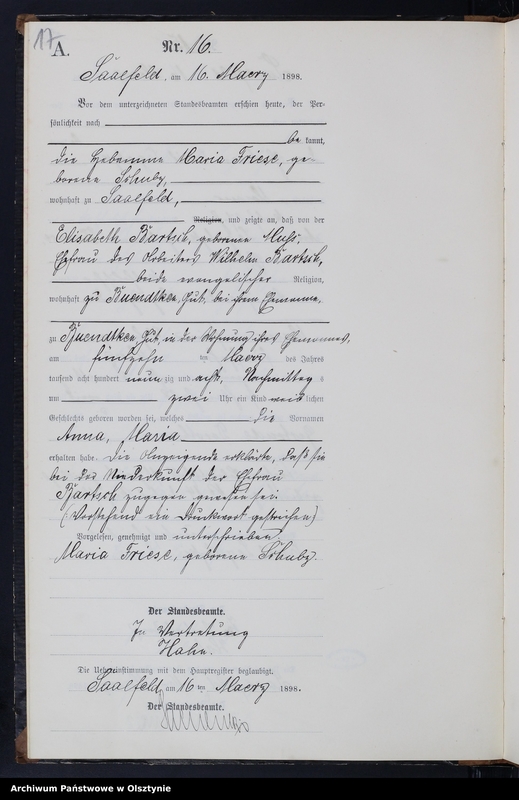 17
A.
Nr. 16.
Saalfeld, am 16. Maerz 1898.
Vor dem unterzeichneten Standesbeamten erschien heute, der Per-
sönlichkeit nach
be kannt,
die Hebamme Maria Friese, ge-
borene Schuby,
wohnhaft zu Saalfeld,
Religion, und zeigte an, daß von der
Elisabeth Bartsch, geborenen
Ehefrau des Arbeiters Wilhelm Bartsch,
beide evangelischer Religion,
wohnhaft zu Kuendtken, Gut, bei ihrem Ehemanne,
zu Kuendtken, Gut, in der Wohnung ihres Ehemannes,
am fünfzehn ten Maerz des Jahres
tausend acht hundert neun zig und acht, Nachmittag s
um zwei Uhr ein Kind weib lichen
Geschlechts geboren worden sei, welches die Vornamen
Anna, Maria
erhalten habe. Die Anzeigende erklärte, daß sie
bei der Niederkunft der Ehefrau
Bartsch zugegen gewesen sei.
(Vorstehend ein Druckwort gestrichen)
Vorgelesen, genehmigt und unterschrieben.
Maria Friese, geborene Schuby.
Der Standesbeamte.
In Vertretung
Hahn.
Die Uebereinstimmung mit dem Hauptregister beglaubigt.
Saalfeld, am 16 ten Maerz 1898.
Der Standesbeamte.
Archiwum Państwowe w Olsztynie